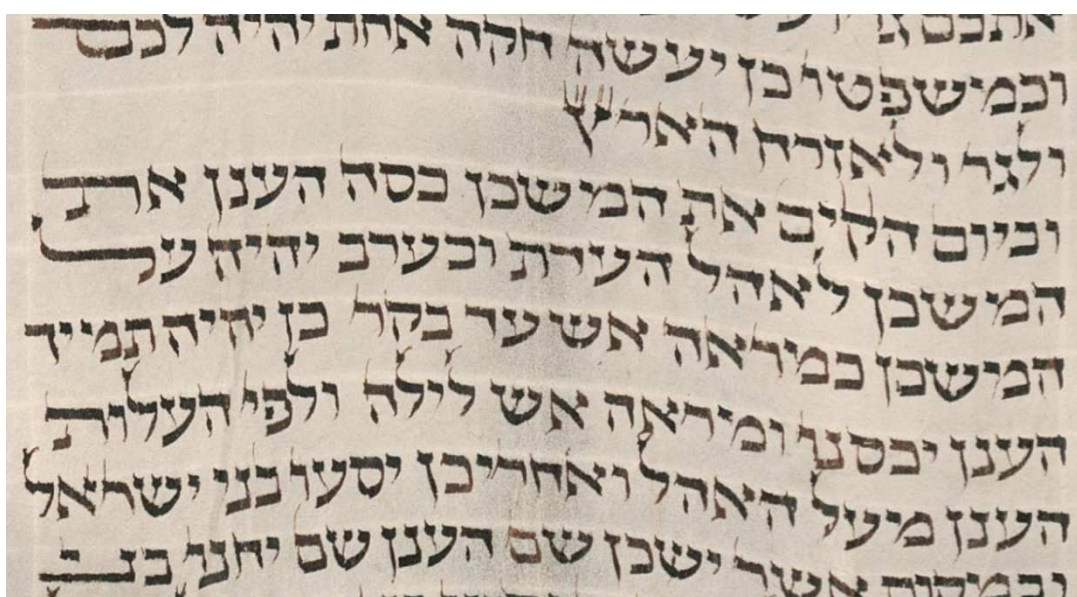 אתכם
וכמשפטו כן יעשה חקה אחת יהיה לכם
ולגר ולאזרח הארץ
וביום הקים את המשכן כסה הענן את
המשכן לאהל העדת ובערב יהיה על
המשכן כמראה אש עד בקר כן יהיה תמיד
הענן יכסנו ומראה אש לילה ולפי העלות
הענן מעל האהל ואחרי כן יסעו בני ישראל
ובמקום אשר ישכן שם הענן שם יחנו בני